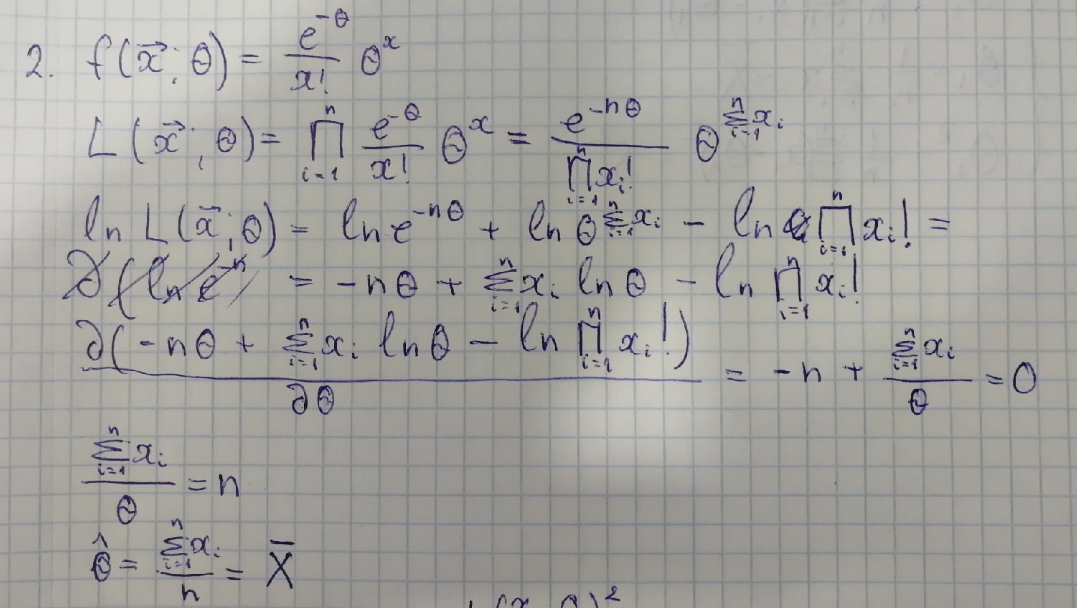 2. f(x⃗; θ) = e^{-θ}/x! θ^x
L(x⃗; θ) = ∏_{i=1}^{n} e^{-θ}/x! θ^x = e^{-nθ}/∏_{i=1}^{n} x_i! θ^{∑_{i=1}^{n} x_i}
ln L(x⃗; θ) = ln e^{-nθ} + ln θ^{∑_{i=1}^{n} x_i} - ln ∏_{i=1}^{n} x_i! =
= -nθ + ∑_{i=1}^{n} x_i ln θ - ln ∏_{i=1}^{n} x_i!
∂(-nθ + ∑_{i=1}^{n} x_i ln θ - ln ∏_{i=1}^{n} x_i!)/∂θ = -n + ∑_{i=1}^{n} x_i/θ = 0
∑_{i=1}^{n} x_i/θ = n
θ̂ = ∑_{i=1}^{n} x_i/n = X̄